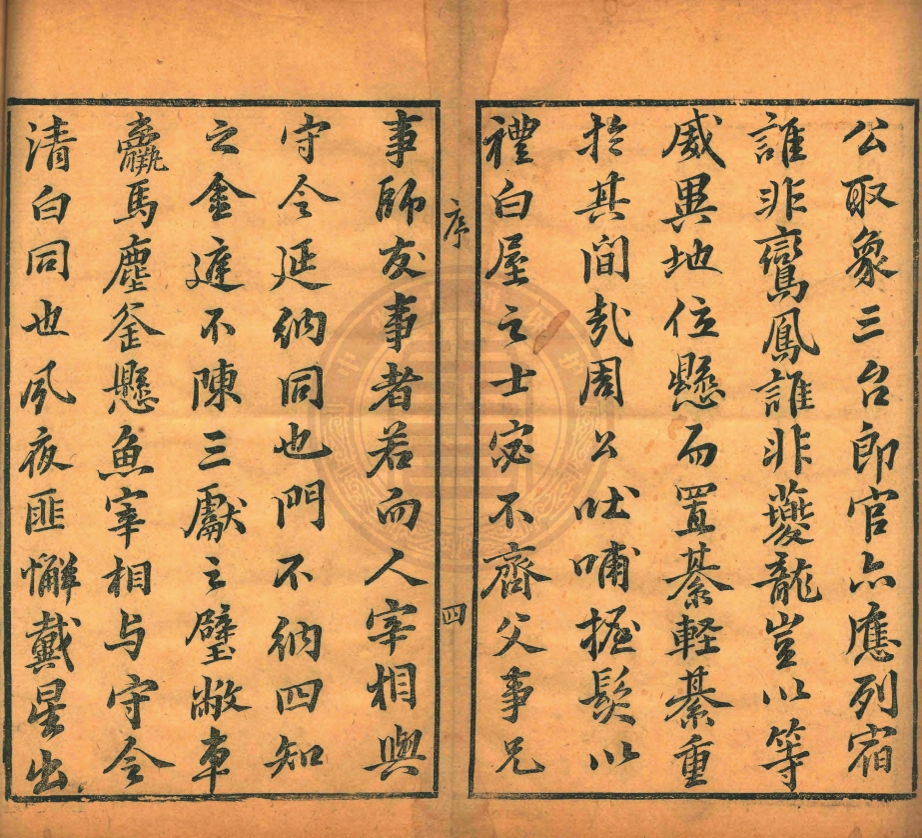 公取象三台郎官亦應列宿
誰非鸞鳳誰非夔龍豈以等
威異地位懸而置綦輕綦重
於其間㢤周公吐哺握髮以
禮白屋之士宓不齊父事兄
序
四
事師友事者若而人宰相與
守令延納同也門不納四知
之金進不陳三獻之璧敝車
羸馬塵釜懸魚宰相与守令
清白同也夙夜匪懈戴星出